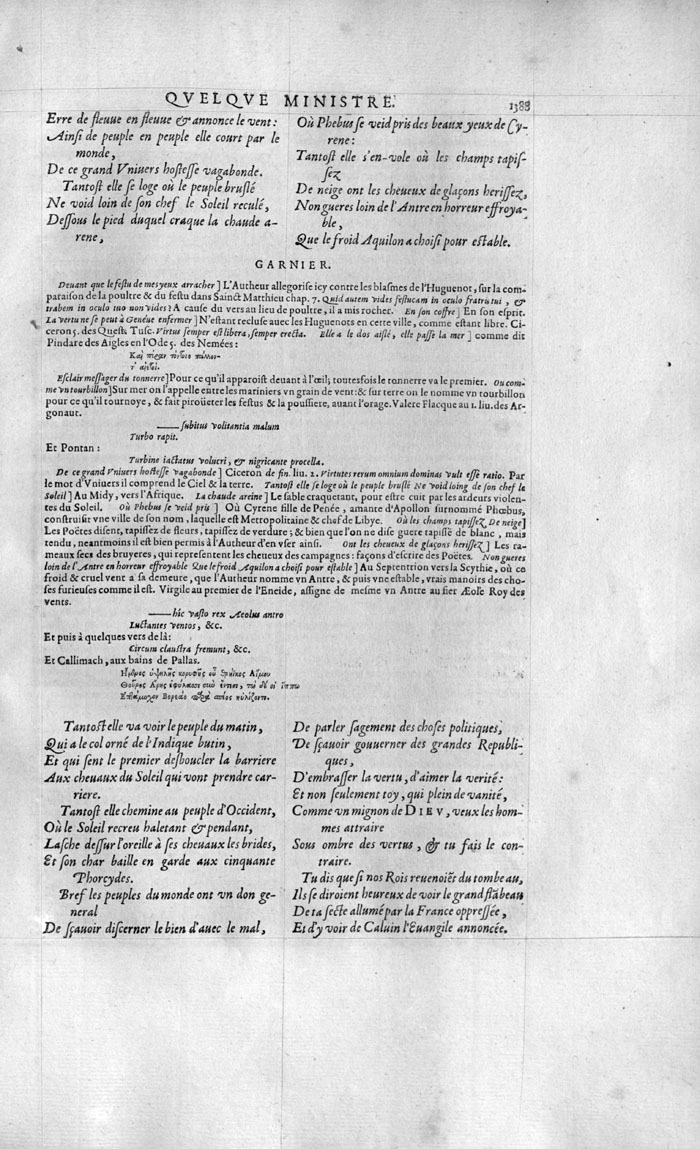 QVELQVE MINISTRE.
1388
Erre de fleuue en fleuue & annonce le vent:
Ainsi de peuple en peuple elle court par le
monde,
De ce grand Vniuers hostesse vagabonde.
Tantost elle se loge où le peuple bruslé
Ne void loin de son chef le Soleil reculé,
Dessous le pied duquel craque la chaude a-
rene,
Où Phebus se veid pris des beaux yeux de Cy-
rene:
Tantost elle s'en-vole où les champs tapis-
sez
De neige ont les cheueux de glaçons herissez,
Non gueres loin de l'Antre en horreur effroya-
ble,
Que le froid Aquilon a choisi pour estable.
GARNIER.
Deuant que le festu de mes yeux arracher] L'Autheur allegorise icy contre les blasmes de l'Huguenot, sur la com-
paraison de la poultre & du festu dans Sainct Matthieu chap. 7. Quid autem vides festucam in oculo fratris tui, &
trabem in oculo tuo non vides? A cause du vers au lieu de poultre, il a mis rocher. En son coffre] En son esprit.
La vertu ne se peut à Genéue enfermer] N'estant recluse auec les Huguenots en cette ville, comme estant libre. Ci-
ceron 5. des Quest. Tusc. Virtus semper est libera, semper erecta. Elle a le dos aislé, elle passe la mer] comme dit
Pindare des Aigles en l'Ode 5. des Nemées:
Esclair messager du tonnerre] Pour ce qu'il apparoist deuant à l'œil; toutesfois le tonnerre va le premier. Ou com-
me vn tourbillon] Sur mer on l'appelle entre les mariniers vn grain de vent: & sur terre on le nomme vn tourbillon
pour ce qu'il tournoye, & fait piroüeter les festus & la poussiere, auant l'orage. Valere Flacque au 1. liu. des Ar-
gonaut.
——subitus volitantia malum
Turbo rapit.
Et Pontan:
Turbine iactatus volucri, & nigricante procella.
De ce grand Vniuers hostesse vagabonde] Ciceron de fin. liu. 2. Virtutes rerum omnium dominas vult esse ratio. Par
le mot d'Vniuers il comprend le Ciel & la terre. Tantost elle se loge où le peuple bruslé Ne void loing de son chef le
Soleil] Au Midy, vers l'Afrique. La chaude areine] Le sable craquetant, pour estre cuit par les ardeurs violen-
tes du Soleil. Où Phebus se veid pris] Où Cyrene fille de Penée, amante d'Apollon surnommé Phœbus,
construisit vne ville de son nom, laquelle est Metropolitaine & chef de Libye. Où les champs tapissez De neige]
Les Poëtes disent, tapissez de fleurs, tapissez de verdure; & bien que l'on ne dise guere tapissé de blanc, mais
tendu, neantmoins il est bien permis à l'Autheur d'en vser ainsi. Ont les cheueux de glaçons herissez] Les ra-
meaux secs des bruyeres, qui representent les cheueux des campagnes: façons d'escrire des Poëtes. Non gueres
loin de l'Antre en horreur effroyable Que le froid Aquilon a choisi pour estable] Au Septentrion vers la Scythie, où ce
froid & cruel vent a sa demeure, que l'Autheur nomme vn Antre, & puis vne estable, vrais manoirs des cho-
ses furieuses comme il est. Virgile au premier de l'Eneide, assigne de mesme vn Antre au fier Æole Roy des
vents.
——hic vasto rex Aeolus antro
Luctantes ventos, &c.
Et puis à quelques vers de là:
Circum claustra fremunt, &c.
Et Callimach, aux bains de Pallas.
Tantost elle va voir le peuple du matin,
Qui a le col orné de l'Indique butin,
Et qui sent le premier desboucler la barriere
Aux cheuaux du Soleil qui vont prendre car-
riere.
Tantost elle chemine au peuple d'Occident,
Où le Soleil recreu haletant & pendant,
Lasche dessur l'oreille à ses cheuaux les brides,
Et son char baille en garde aux cinquante
Phorcydes.
Bref les peuples du monde ont vn don ge-
neral
De sçauoir discerner le bien d'auec le mal,
De parler sagement des choses politiques,
De sçauoir gouuerner des grandes Republi-
ques,
D'embrasser la vertu, d'aimer la verité:
Et non seulement toy, qui plein de vanité,
Comme vn mignon de DIEV, veux les hom-
mes attraire
Sous ombre des vertus, & tu fais le con-
traire.
Tu dis que si nos Rois reuenoiēt du tombeau,
Ils se diroient heureux de voir le grand flābeau
De ta secte allumé par la France oppressée,
Et d'y voir de Caluin l'Euangile annoncée.